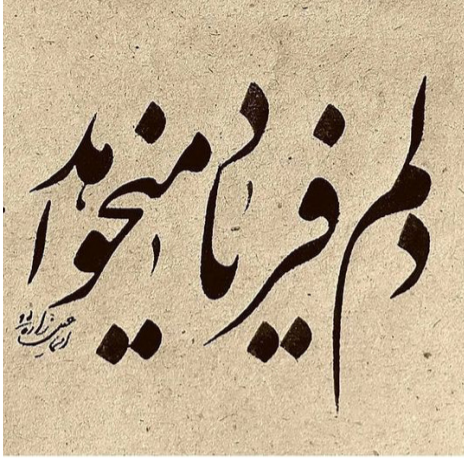 دلم فریاد میخواهد